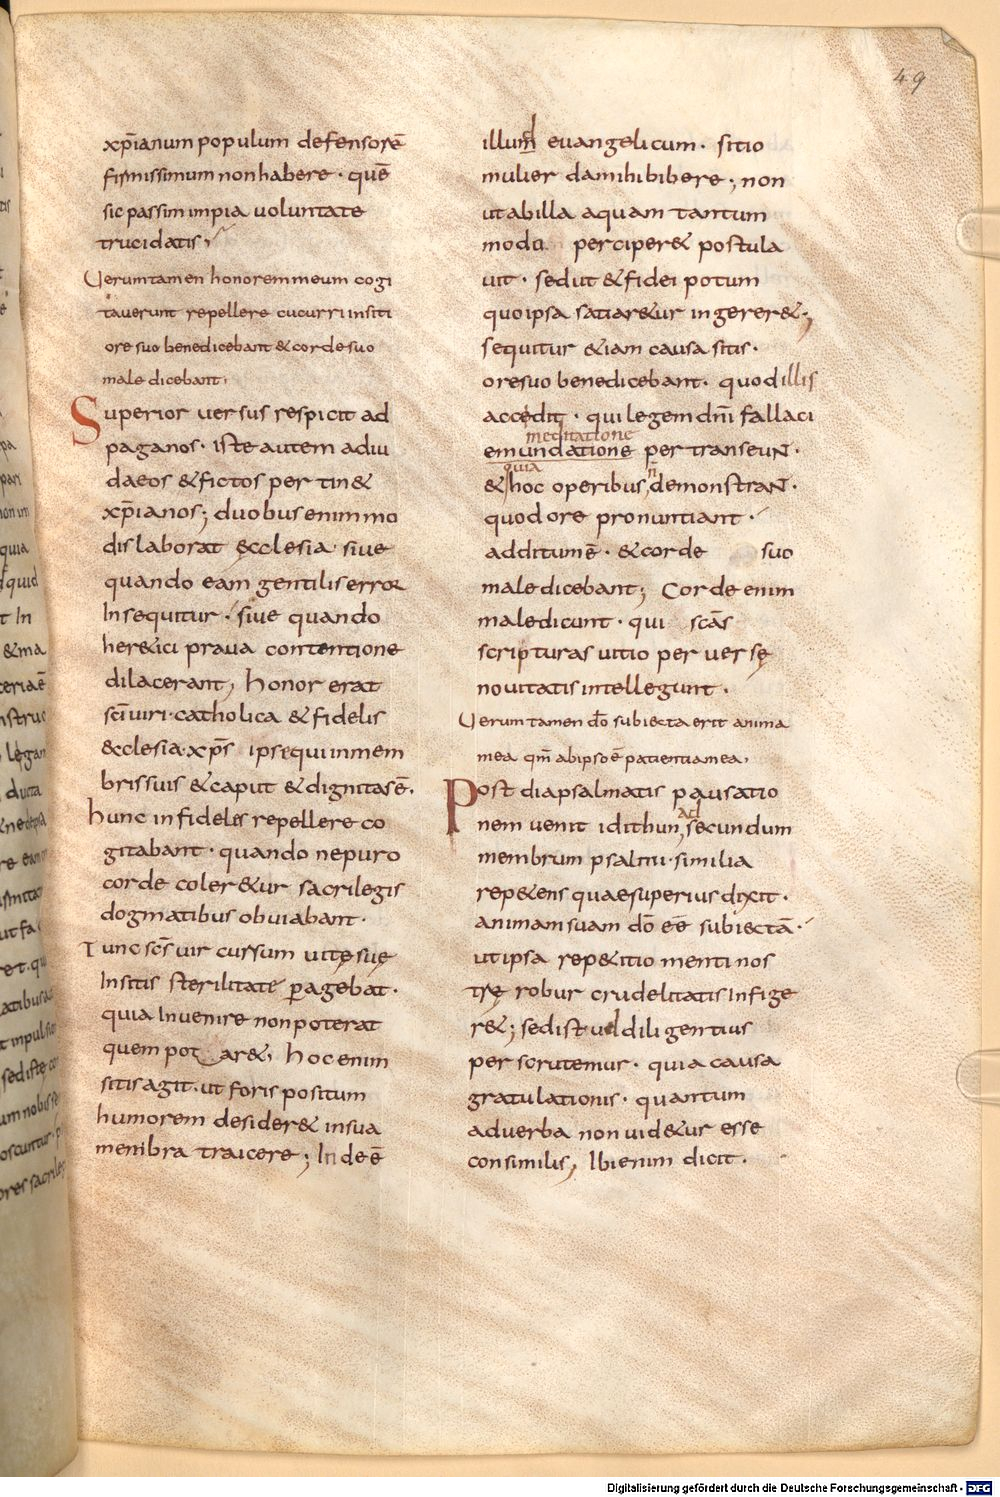 49
xp̄ianum populum defensorē
firmissimum non habere · quē
sic passim impia uoluntate
trucidatis;
Uerumtamen honorem meum cogi
tauerunt repellere cucurri in siti
ore suo benedicebant & corde suo
male dicebant,
Superior uersus respicit ad
paganos · iste autem ad iu
daeos & fictos pertin&
xp̄ianos; duobus enim mo
dis laborat ęcclesia · siue
quando eam gentilis error
Insequitur · siue quando
her&ici praua contentione
dilacerant, honor erat
sc̄i uiri · catholica & fidelis
&cclesia · xp̄s ipse qui in mem
bris suis & caput & dignitas ē.
hunc infideles repellere co
gitabant · quando ne puro
corde coler&ur sacrilegis
dogmatibus obuiabant ·
Tunc sc̄s uir cursum uitę suę
In sitis sterilitate ꝑagebat ·
quia Inuenire non poterat
quem pot ar&, hoc enim
sitis agit · ut foris positum
humorem desider& in sua
membra traicere; Inde ē
illum euangelicum · sitio
mulier da mihi bibere; non
ut ab illa aquam tantum
modo perciper& postula
uit · sed ut & fidei potum
quo ipsa satiar&ur ingerer&;
sequitur &iam causa sitis ·
ore suo benedicebant · quod illis
accedit · qui legem dn̄i fallaci
meditatione
emundatione per transeuN·
quia n̄
& hoc operibus demonstraN·
quod ore pronuntiant ·
additum ē · & corde suo
male dicebant; Corde enim
maledicunt · qui scās
scripturas uitio peruersę
nouitatis intellegunt ·
Uerum tamen dō subiecta erit anima
mea qm̄ ab ipso ē patientia mea,
Post diapsalmatis pausatio
ad
nem uenit idithun, secundum
membrum psalmi · similia
rep&ens quae superius dixit ·
animam suam dō eē subiectā ·
ut ipsa rep&itio menti nos
trę robur crudelitatis Infige
r&; sed istud diligentius
perscrutemur · quia causa
gratulationis · quantum
ad uerba non uid&ur esse
consimilis, Ibi enim dicit ·
Digitalisierung gefördert durch die Deutsche Forschungsgemeinschaft - DFG